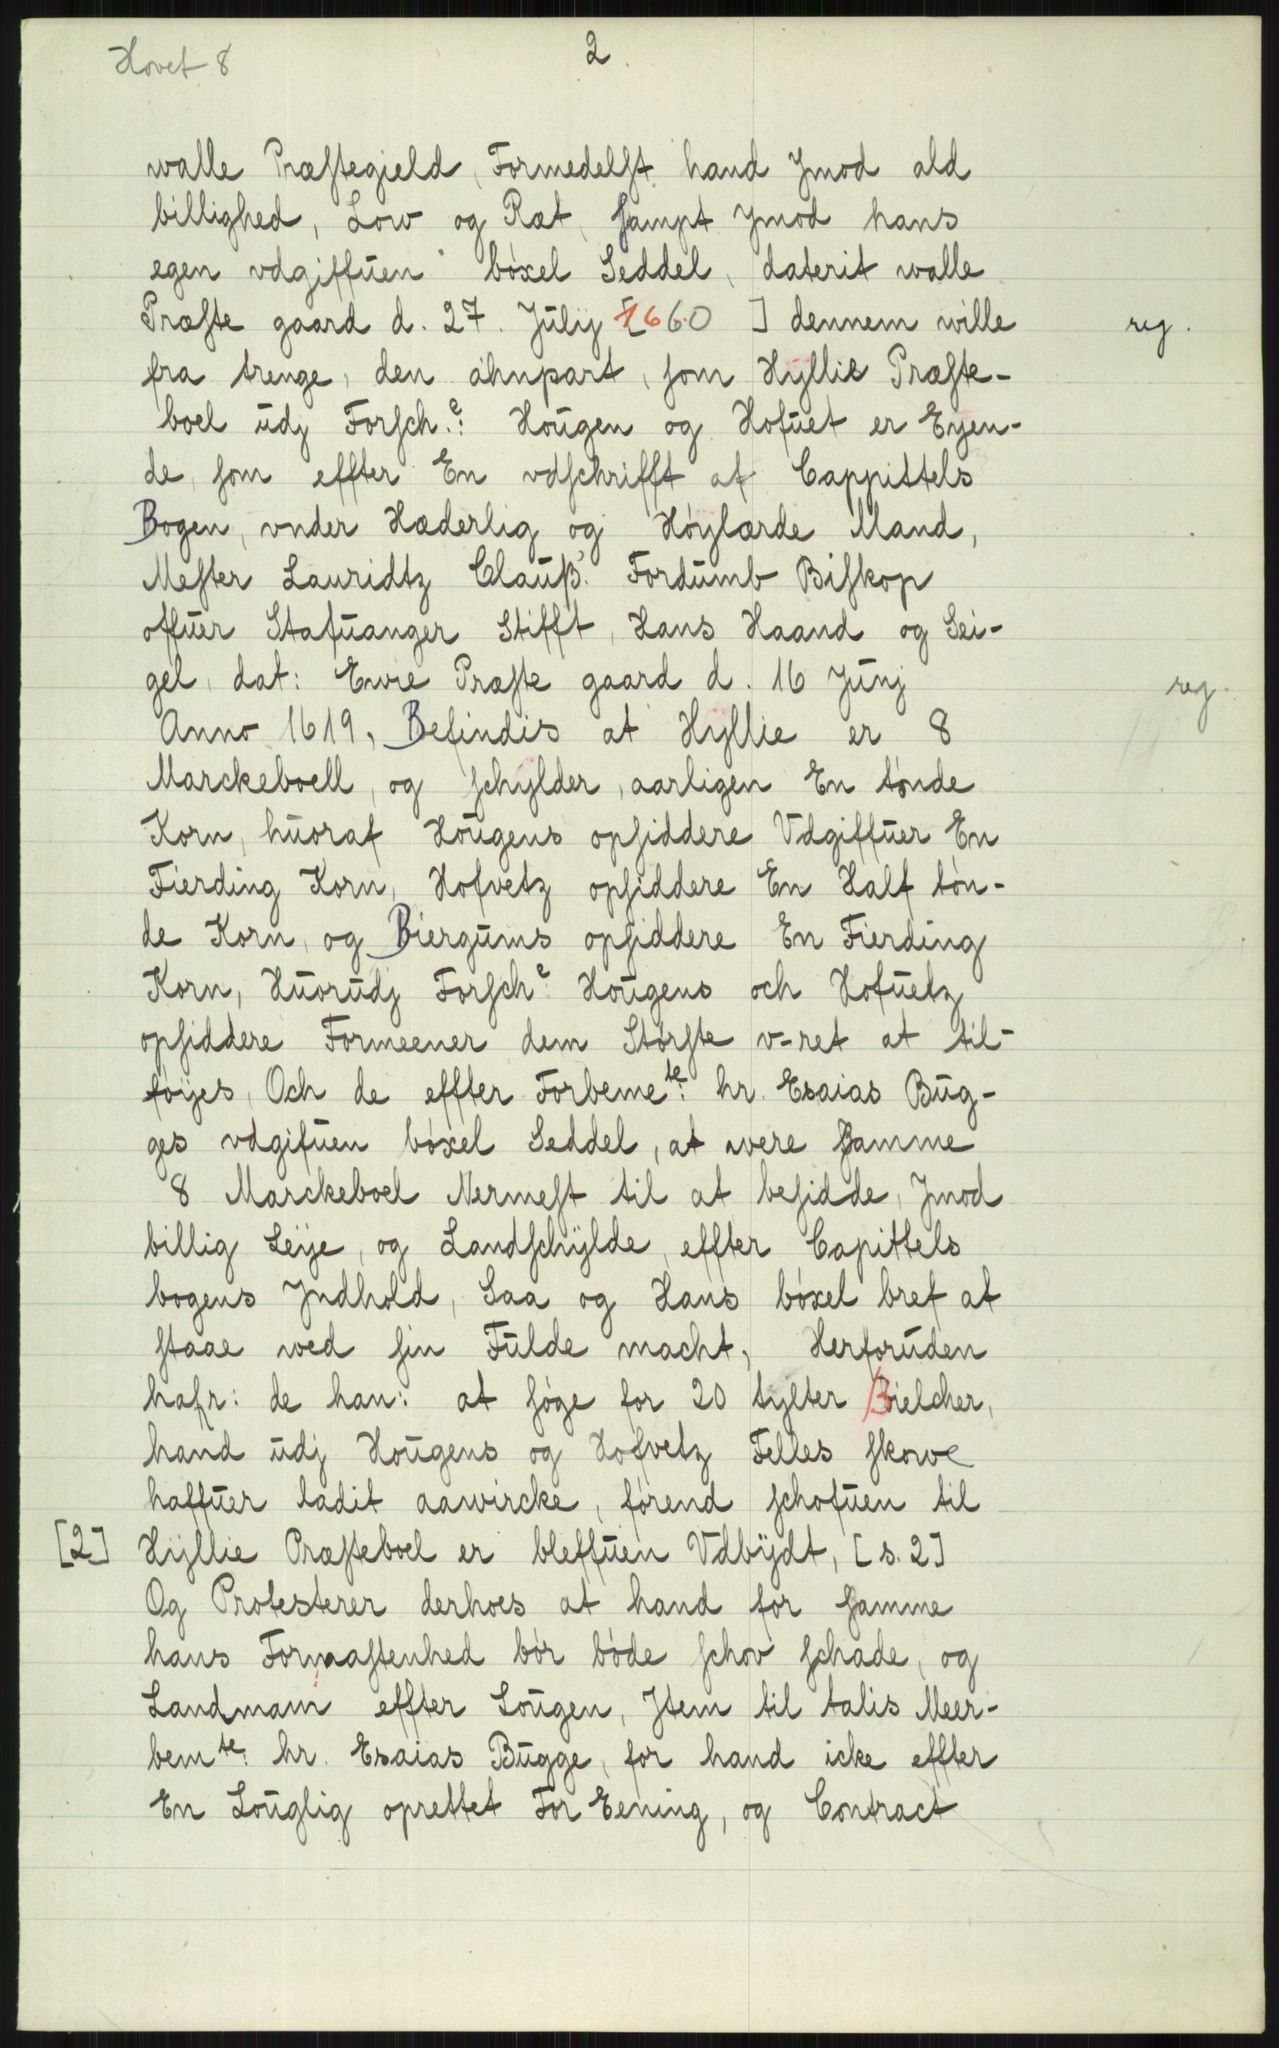 Hovet 8
2.
walle Præstegield, Formedelst hand Jmod ald
billighed, Low og Ræt, sampt Jmod hans
egen vdgiffuen bóxel Seddel, daterit walle
Præste gaard d. 27. Julij [1660 ] dennem wille
reg.
fra trenge, den ahnpart, som Hyllie Præste-
boel udj Forsch.e: Hougen og Hofuet er Eyen-
de, som effter En vdschrifft af Cappittels
Bogen, vnder Hæderlig og Høylærde Mand,
Mester Lauridtz Clauß. Fordumb Biskop
offuer Stafuanger Stifft, Hans Haand og Sei-
gel, dat: Ewie Præste gaard d. 16 Junj
reg.
Anno 1619, Befindis at Hyllie er 8
Marckeboell, og schylder, aarligen En tónde
Korn, huoraf Hougens opsiddere Vdgiffuer En
Fierding Korn, Hofvetz opsiddere En Half tón-
de Korn, og Biergums opsiddere En Fierding
Korn, Huorudj Forsche: Hougens och Hofuetz
opsiddere Formeener dem Stórste v-ret at til-
fóyes, Och de effter Forbemete: hr. Esaias Bug-
ges vdgifuen bóxel Seddel, at were samme
8 Marckeboel Nermest til at besidde, Jmod
billig Leye, og Landschÿlde, effter Capittels
bogens Jndhold, Saa og Hans bóxel bref at
staae wed sin Fulde macht, Herforuden
hafr: de han: at sóge for 20 tylter Bielcher,
hand udj Hougens og Hofvetz Felles skowe
haffuer ladit aawircke, fórend schofuen til
[2] Hyllie Præsteboel er bleffuen Vdbÿdt, [s. 2]
Og Protesterer derhoes at hand for samme
hans Formastenhed bór bóde schov schade, og
Landmam effter Lougen, Jtem til talis Meer-
bemte: hr. Esaias Bugge, for hand icke effter
En Louglig oprettet For Eening, og Contract